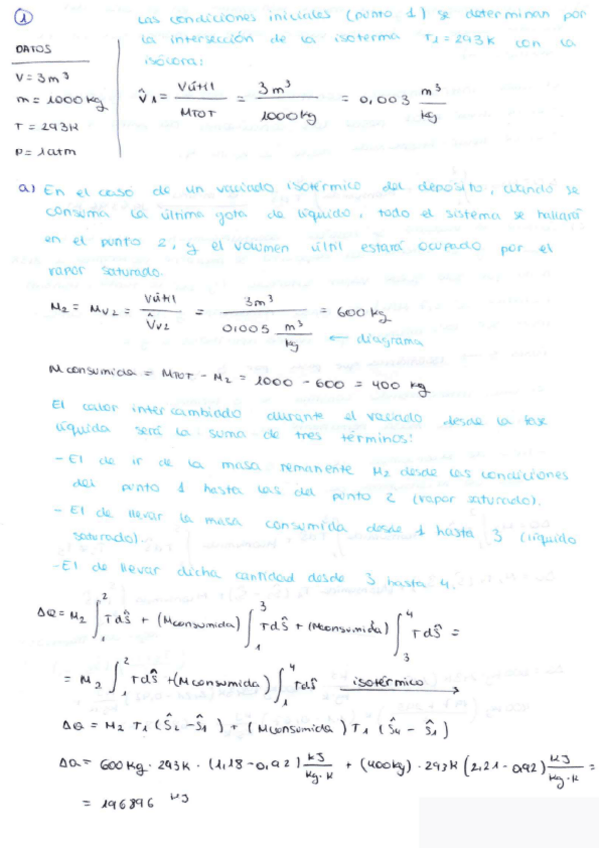 ①
Las condiciones iniciales (punto 1) se determinan por
la intersección de la isoterma T₁=293K con la
isócora:
DATOS
V=3m³
m=1000kg
T=293K
P=1atm
V̂₁ = Vútil / MTOT = 3m³ / 1000kg = 0,003 m³/kg
a) En el caso de un vaciado isotérmico del depósito, cuando se
consuma la última gota de líquido, todo el sistema se hallará
en el punto 2, y el volumen útil estará ocupado por el
vapor saturado.
M₂ = Mv₂ = Vútil / V̂v₂ = 3m³ / 0,005 m³/kg = 600kg
← diagrama
Mconsumida = MTOT - M₂ = 1000 - 600 = 400 kg
El calor intercambiado durante el vaciado desde la fase
líquida será la suma de tres términos:
- El de ir de la masa remanente M₂ desde las condiciones
del punto 1 hasta las del punto 2 (vapor saturado).
- El de llevar la masa consumida desde 1 hasta 3 (líquido
saturado).
- El de llevar dicha cantidad desde 3 hasta 4.
ΔQ = M₂ ∫₁² Tdŝ + (Mconsumida) ∫₁³ Tdŝ + (Mconsumida) ∫₃⁴ Tdŝ =
= M₂ ∫₁² Tdŝ + (Mconsumida) ∫₁⁴ Tdŝ isotérmico →
ΔQ = M₂ T₁ (Ŝ₂ - Ŝ₁) + (Mconsumida) T₁ (Ŝ₄ - Ŝ₁)
ΔQ = 600kg · 293K · (1,18-0,92) kJ/kg·K + (400kg) · 293K (2,21-0,92) kJ/kg·K =
= 196896 kJ